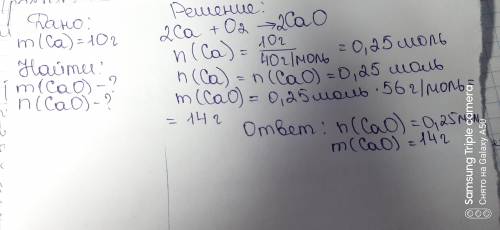 Дано:
m(Ca)=10г
Найти:
m(CaO)-?
n(CaO)-?
Решение:
2Ca + O2 →2CaO
n(Ca) = 10г/40г/моль = 0,25 моль
n(Ca) = n(CaO) = 0,25 моль
m(CaO) = 0,25моль · 56г/моль =
= 14г
Ответ: n(CaO) = 0,25моль
m(CaO) = 14г
Samsung Triple camera
Снято на Galaxy A50